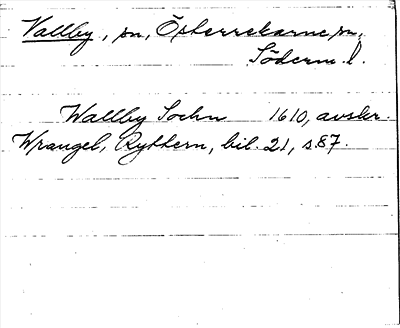 Vallby, sn, Österrekarne sn,
Söderm. l.
Wallby Sochn 1610, avskr.
Wrangel, Ryttern, bil. 21, s. 87.